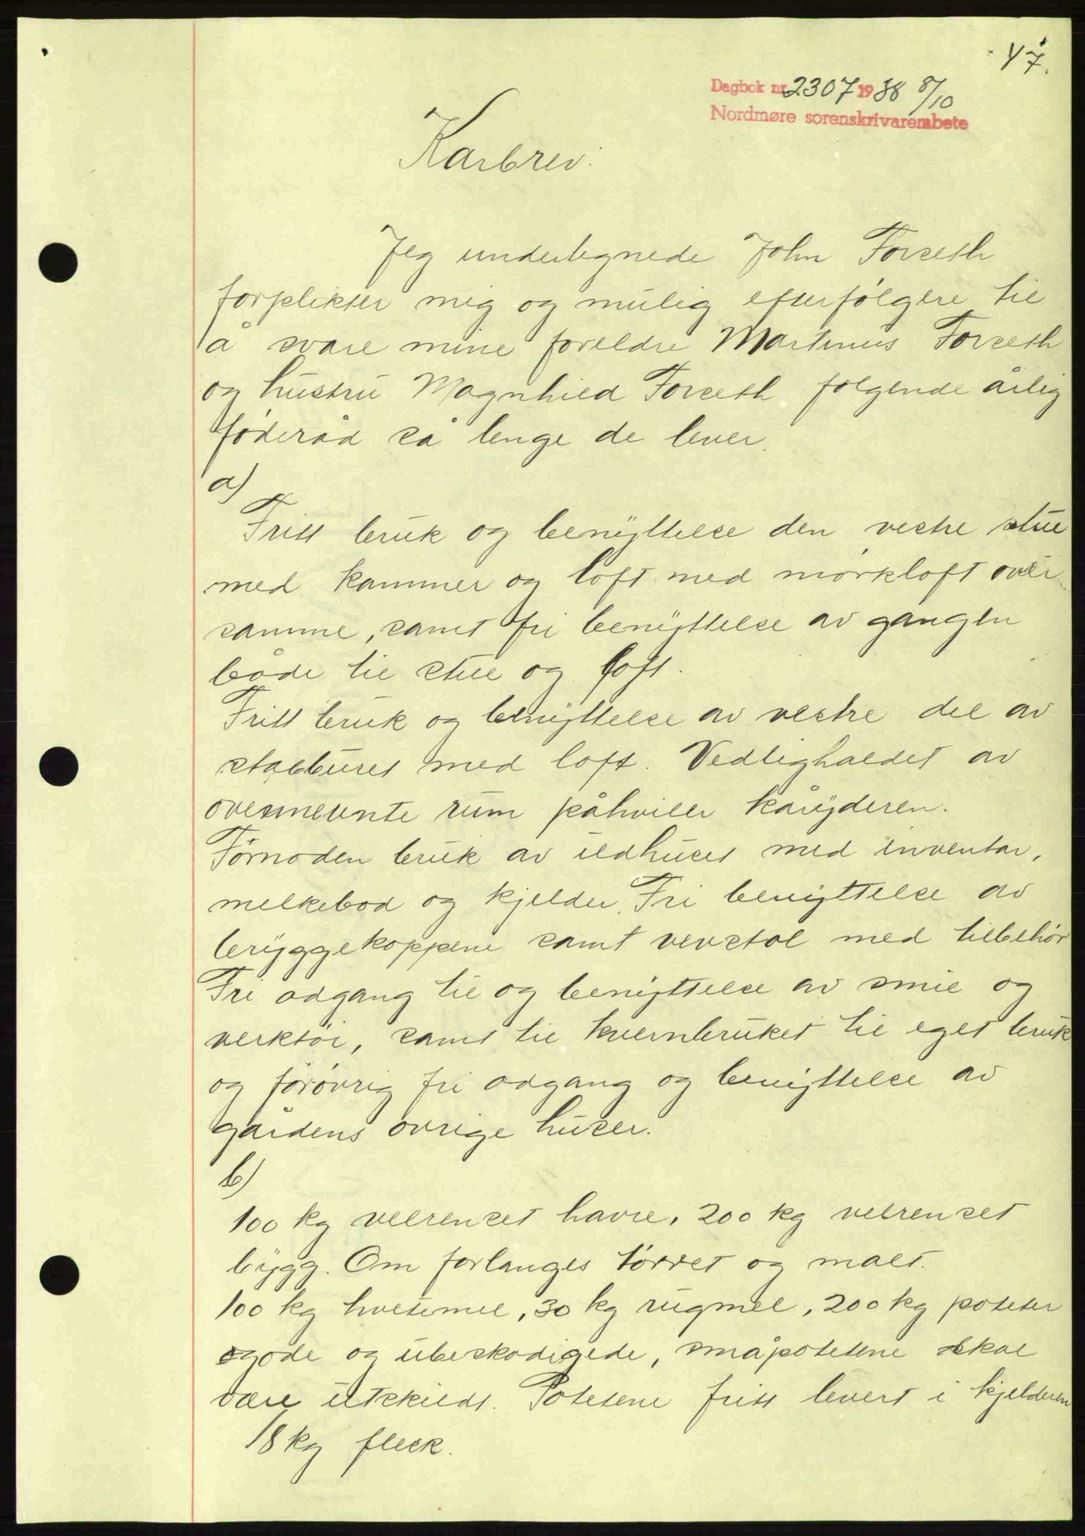 47.
Dagbok nr. 2307 1938 8/10
Nordmøre sorenskrivarembete
Karbrev.
Jeg undertegnede John Forseth
forplikter mig og mulig efterfølgere til
å svare mine foreldre Martinus Forseth
og hustru Magnhild Forseth følgende årlig
føderåd så lenge de lever.
a)
Fritt bruk og benyttelse den vestre stue
med kammer og loft med mørkloft over
samme, samt fri benyttelse av gangen
både til stue og loft.
Fritt bruk og benyttelse av vestre del av
stabburet med loft. Vedligholdet av
ovennevnte rum påhviler kåryderen.
Fornøden bruk av ildhuset med inventar,
melkebod og kjelder. Fri benyttelse av
bryggekoppene samt vevstol med tilbehør
Fri adgang til og benyttelse av smie og
verktøi, samt til kvernbruket til eget bruk
og forøvrig fri adgang og benyttelse av
gårdens øvrige huser.
b)
100 kg velrenset havre, 200 kg velrenset
bygg. Om forlanges tørret og malt.
100 kg hvetemel, 30 kg rugmel, 200 kg poteter
gode og ubeskadigede, småpotetene skal
være utskilt. Potetene fritt levert i kjelderen
18 kg flesk.